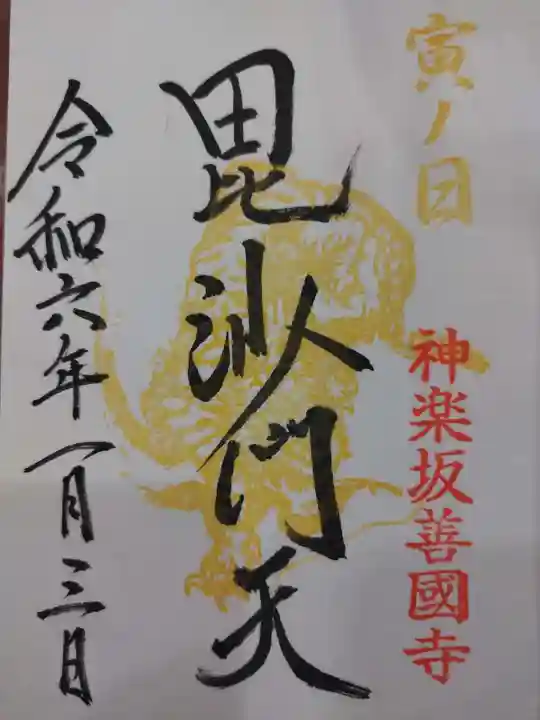 寅ノ日
神楽坂善國寺
毘沙門天
令和六年一月三日